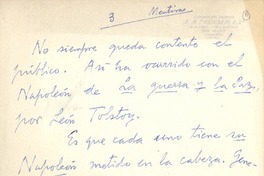 3
Mentiras
No siempre queda contento el
público. Así ha ocurrido con el
Napoleón de La guerra y la Paz,
por León Tolstoy.
Es que cada uno tiene su
Napoleón metido en la cabeza. Gene-